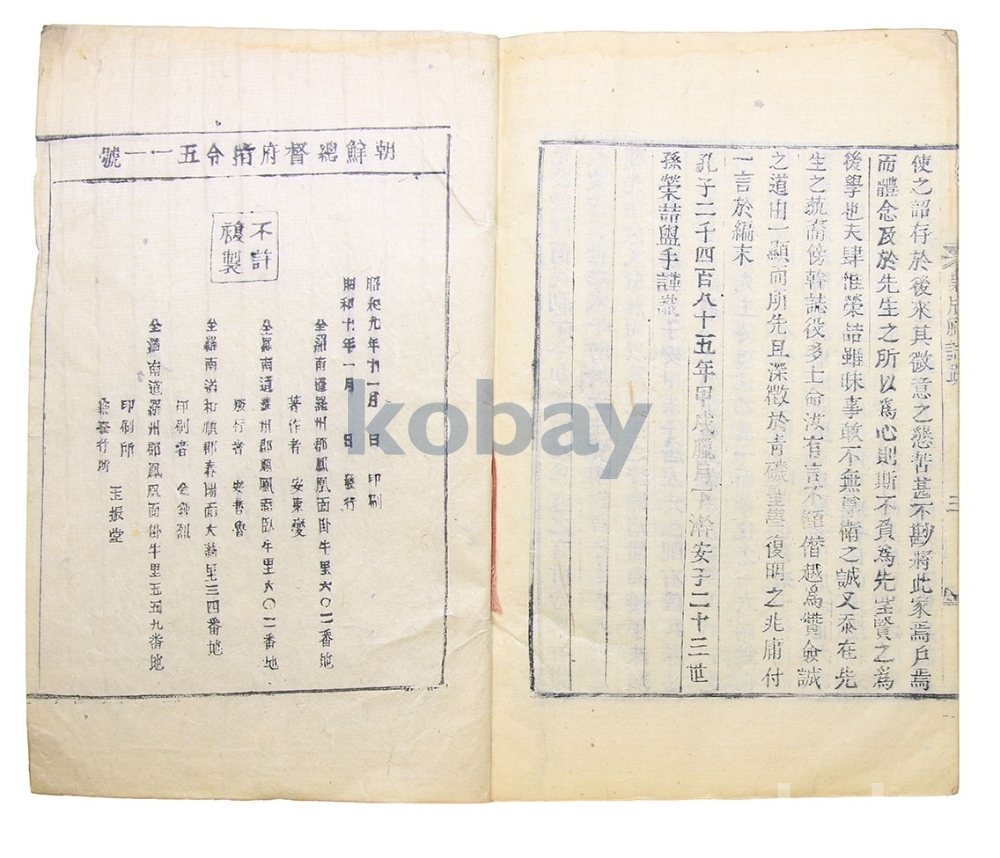 使之詔存於後來其微意之懇苦甚不尠將此家焉戶焉
而體念及於先生之所以爲心則斯不負爲先生賢之爲
後學也夫肆惟榮喆雖昧事敢不無掌衛之誠又忝在先
生之㐲裔傍幹誌役多士命汝有言不徑僭越爲贊僉誠
之道由一顯而所先且深徵於靑磯聖學復明之兆庸付
一言於編末
孔子二千四百八十五年甲戌臘月下澣安子二十三世
孫榮喆盥手謹識
三
朝鮮總督府指令五一一號
不許
複製
昭和九年十一月 日 印刷
昭和十年一月 日 發行
全羅南道羅州郡鳳凰面掛牛里六〇二番地
著作者 安東燮
全羅南道羅州郡鳳凰面臥牛里六〇二番地
發行者 安
全羅南道和順郡春陽面大 里三四番地
印刷者 金 烈
全羅南道羅州郡鳳凰面掛牛里五五九番地
印刷所
兼發行所 玉振堂
kobay